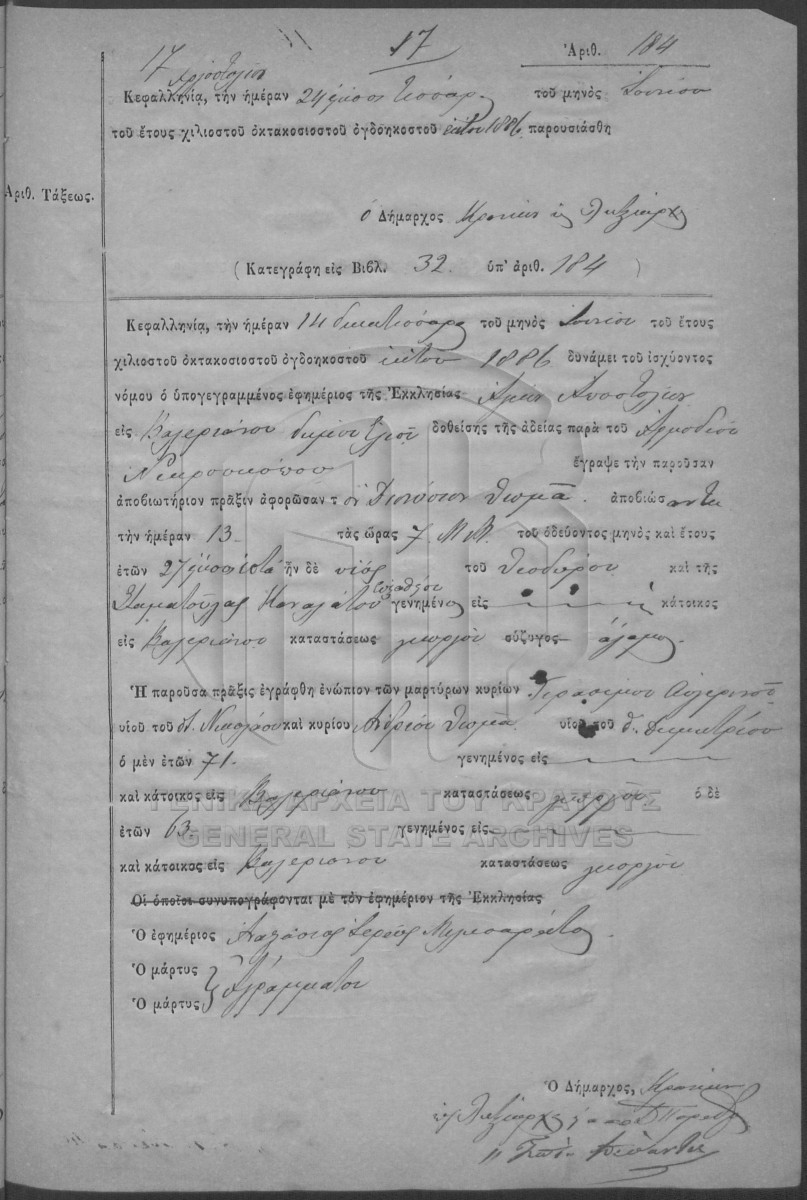 17 17 Ἀριθ. 184
Ἀργοστόλιον
Κεφαλληνία, τὴν ἡμέραν 24 εἴκοσι τέσσαρ. τοῦ μηνὸς Ἰουνίου
τοῦ ἔτους χιλιοστοῦ ὀκτακοσιοστοῦ ὀγδοηκοστοῦ ἕκτου 1886 παρουσιάσθη
Ἀριθ. Τάξεως.
ὁ Δήμαρχος Κρανίων ὡς Ληξίαρχ
(Κατεγράφη εἰς Βιβλ. 32. ὑπ' ἀριθ. 184 )
Κεφαλληνία, τὴν ἡμέραν 14 δεκατέσσαρα τοῦ μηνὸς Ἰουνίου τοῦ ἔτους
χιλιοστοῦ ὀκτακοσιοστοῦ ὀγδοηκοστοῦ ἕκτου 1886 δυνάμει τοῦ ἰσχύοντος
νόμου ὁ ὑπογεγραμμένος ἐφημέριος τῆς Ἐκκλησίας Ἁγίων Ἀποστόλων
εἰς Βαλεριάνου δοθείσης τῆς ἀδείας παρὰ τοῦ Ἁρμοδίου
Νεκροσκόπου ἔγραψε τὴν παροῦσαν
ἀποβιωτήριον πρᾶξιν ἀφορῶσαν τ ὸν Διονύσιον Θωμᾶ. ἀποβιώσ αντα
τὴν ἡμέραν 13 τὰς ὥρας 7. Μ.Μ. τοῦ ὁδεύοντος μηνὸς καὶ ἔτους
ἐτῶν 27 εἴκοσι ἑπτά ἦν δὲ υἱός τοῦ Θεοδώρου καὶ τῆς
Σταματούλας γενημένος εἰς κάτοικος
εἰς Βαλεριάνου καταστάσεως γεωργοῦ σύζυγος ἄγαμος.
Ἡ παροῦσα πρᾶξις ἐγράφθη ἐνώπιον τῶν μαρτύρων κυρίων Γερασίμου Αὐγερινοῦ
υἱοῦ τοῦ π. Νικολάου καὶ κυρίου Ἀνδρέου Θωμᾶ υἱοῦ τοῦ π. Δημητρίου
ὁ μὲν ἐτῶν 71. γενημένος εἰς
καὶ κάτοικος εἰς Βαλεριάνου καταστάσεως γεωργοῦ ὁ δὲ
ΓΕΝΙΚΑ ΑΡΧΕΙΑ ΤΟΥ ΚΡΑΤΟΥΣ
ἐτῶν 63. γενημένος εἰς
GENERAL STATE ARCHIVES
καὶ κάτοικος εἰς Βαλεριάνου καταστάσεως γεωργοῦ
Οἱ ὁποῖοι συνυπογράφονται μὲ τὸν ἐφημέριον τῆς Ἐκκλησίας
Ὁ ἐφημέριος Ἀναστάσιος Ἱερεύς
Ὁ μάρτυς
Ἀγράμματοι
Ὁ μάρτυς
Ὁ Δήμαρχος, Κρανίων